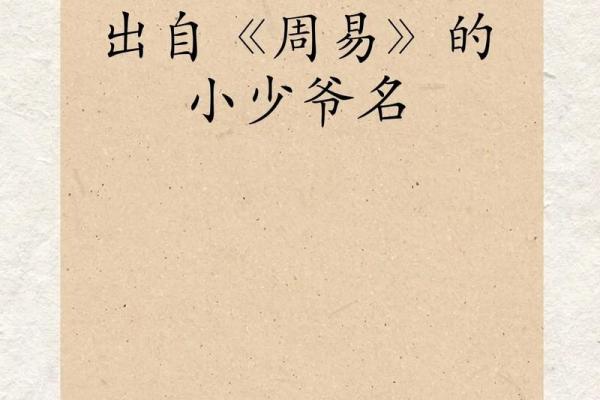 出自《周易》的
小少爷名